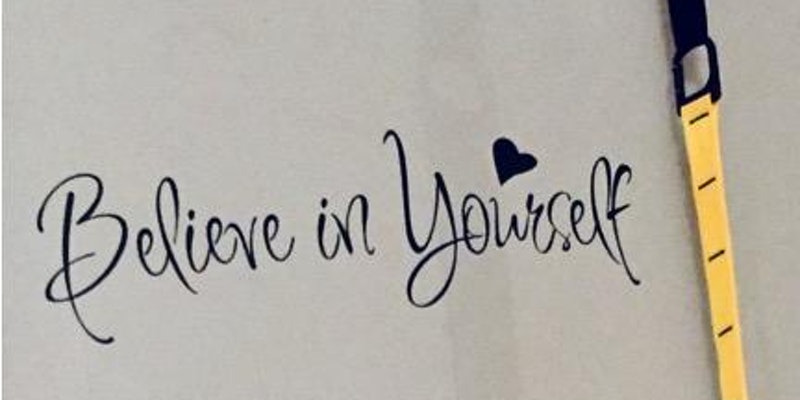 Believe in Yourself